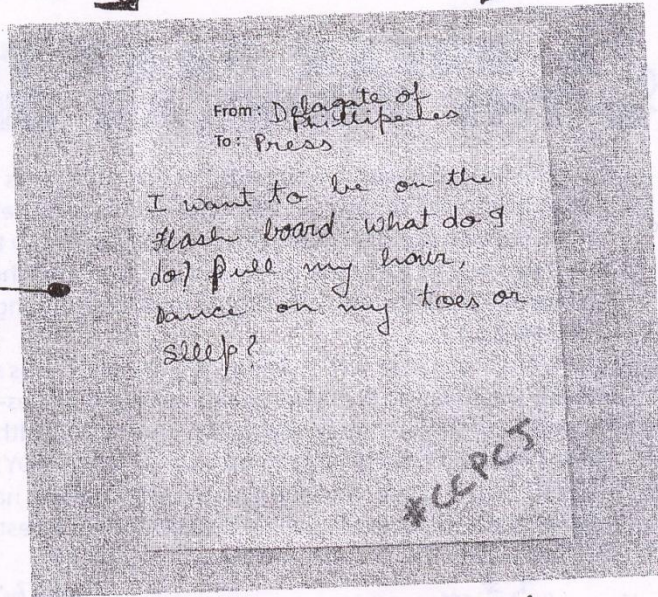 From: Delagate of
Phillipenes
To: Press
I want to be on the
flash board. What do I
do? Pull my hair,
dance on my toes or
sleep?
#CCPCJ